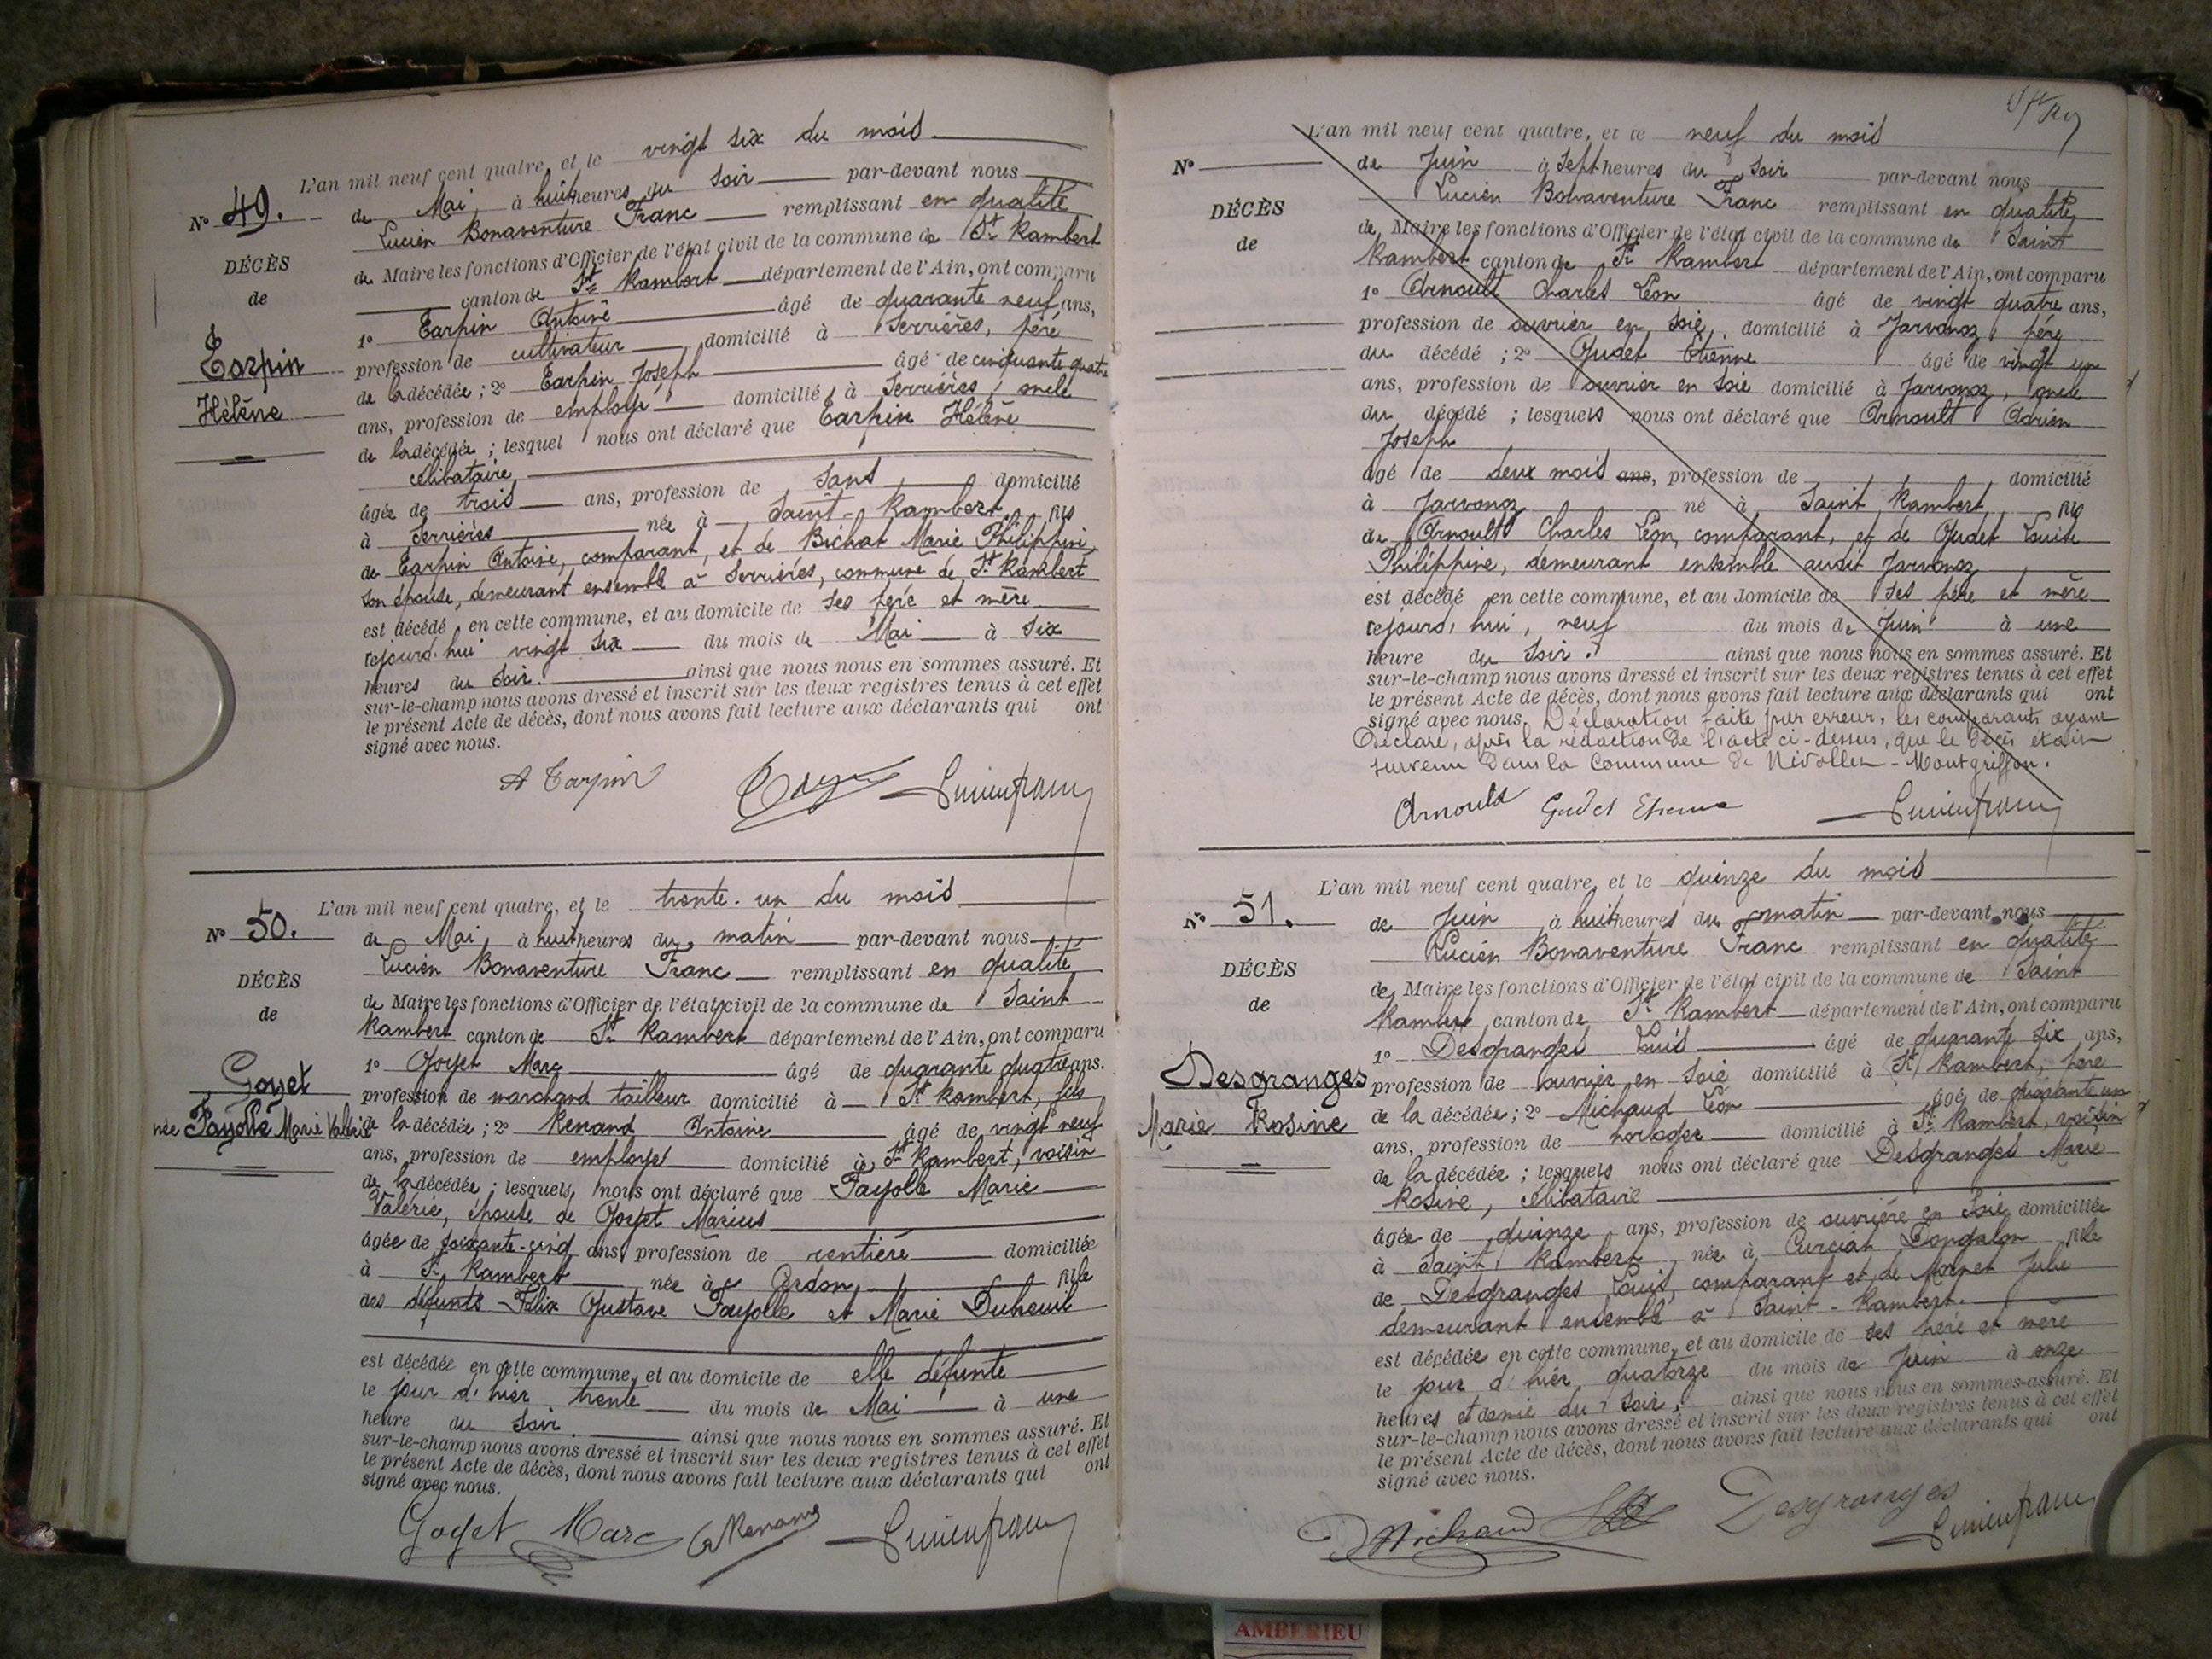 L'an mil neuf cent quatre, et le vingt six du mois
N° 49.
DÉCÈS
de
Tarpin
Hélène
de Mai à huit heures du soir par-devant nous
Lucien Bonaventure Franc remplissant en qualité
de Maire les fonctions d'Officier de l'état civil de la commune de St Rambert
canton de St Rambert département de l'Ain, ont comparu
1° Tarpin Antoine âgé de quarante neuf ans,
profession de cultivateur domicilié à Serrières, père
de la décédée ; 2° Tarpin Joseph âgé de cinquante quatre
ans, profession de employé domicilié à Serrières, oncle
de la décédée ; lesquel nous ont déclaré que Tarpin Hélène
célibataire,
âgée de trois ans, profession de sans domicilié
à Serrières née à Saint-Rambert, fils
de Tarpin Antoine, comparant, et de Bichat Marie Philippine
son épouse, demeurant ensemble à Serrières, commune de St Rambert
est décédé en cette commune, et au domicile de ses père et mère
cejourd'hui vingt six du mois de Mai à six
heures du soir. ainsi que nous nous en sommes assuré. Et
sur-le-champ nous avons dressé et inscrit sur les deux registres tenus à cet effet
le présent Acte de décès, dont nous avons fait lecture aux déclarants qui ont
signé avec nous.
A Tarpin Lucien franc
L'an mil neuf cent quatre, et le trente-un du mois
N° 50.
DÉCÈS
de
Goyet
née Fayolle Marie Valérie
de Mai à huit heures du matin par-devant nous
Lucien Bonaventure Franc remplissant en qualité
de Maire les fonctions d'Officier de l'état civil de la commune de Saint
Rambert canton de St Rambert département de l'Ain, ont comparu
1° Goyet Marc âgé de quarante quatre ans.
profession de marchand tailleur domicilié à St Rambert, fils
de la décédée ; 2° Renand Antoine âgé de vingt neuf
ans, profession de employé domicilié à St Rambert, voisin
de la décédée ; lesquels nous ont déclaré que Fayolle Marie
Valérie, épouse de Goyet Marius
âgée de soixante-cinq ans profession de rentière domiciliée
à St Rambert née à Cerdon fille
des défunts Félix Gustave Fayolle et Marie Dubreuil
est décédée en cette commune, et au domicile de elle défunte
le jour d'hier trente du mois de Mai à une
heure du soir. ainsi que nous nous en sommes assuré. Et
sur-le-champ nous avons dressé et inscrit sur les deux registres tenus à cet effet
le présent Acte de décès, dont nous avons fait lecture aux déclarants qui ont
signé avec nous.
Goyet Marc Renand Lucien franc
L'an mil neuf cent quatre, et le neuf du mois
N°
DÉCÈS
de
de Juin à sept heures du soir par-devant nous
Lucien Bonaventure Franc remplissant en qualité
de Maire les fonctions d'Officier de l'état civil de la commune de Saint
Rambert canton de St Rambert département de l'Ain, ont comparu
1° Arnoult Charles Léon âgé de vingt quatre ans,
profession de ouvrier en soie, domicilié à Javornoz, père
du décédé ; 2° Gudet Etienne âgé de vingt un
ans, profession de ouvrier en soie domicilié à Javornoz, oncle
du décédé ; lesquels nous ont déclaré que Arnoult Adrien
Joseph
âgé de deux mois ans, profession de domicilié
à Javornoz né à Saint Rambert, fils
de Arnoult Charles Léon, comparant, et de Gudet Louise
Philippine, demeurant ensemble audit Javornoz
est décédé en cette commune, et au domicile de ses père et mère
cejourd'hui, neuf du mois de Juin à une
heure du soir. ainsi que nous nous en sommes assuré. Et
sur-le-champ nous avons dressé et inscrit sur les deux registres tenus à cet effet
le présent Acte de décès, dont nous avons fait lecture aux déclarants qui ont
signé avec nous. Déclaration faite par erreur, les comparants ayant
déclaré, après la rédaction de l'acte ci-dessus, que le décès était
survenu dans la commune de Nivollet-Montgriffon.
Arnould Gudet Etienne Lucien franc
L'an mil neuf cent quatre, et le quinze du mois
N° 51.
DÉCÈS
de
Desgranges
Marie Rosine
de Juin à huit heures du matin par-devant nous
Lucien Bonaventure Franc remplissant en qualité
de Maire les fonctions d'Officier de l'état civil de la commune de Saint
Rambert canton de St Rambert département de l'Ain, ont comparu
1° Desgranges Louis âgé de quarante six ans,
profession de ouvrier en soie domicilié à St Rambert, père
de la décédée ; 2° Michaud Léon âgé de quarante un
ans, profession de horloger domicilié à St Rambert, voisin
de la décédée ; lesquels nous ont déclaré que Desgranges Marie
Rosine, célibataire
âgée de quinze ans, profession de ouvrière en soie domiciliée
à Saint Rambert née à Curciat Dongalon fille
de Desgranges Louis, comparant et de Monet Julie
demeurant ensemble à Saint-Rambert.
est décédée en cette commune, et au domicile de ses père et mère
le jour d'hier, quatorze du mois de Juin à onze
heures et demie du soir, ainsi que nous nous en sommes assuré. Et
sur-le-champ nous avons dressé et inscrit sur les deux registres tenus à cet effet
le présent Acte de décès, dont nous avons fait lecture aux déclarants qui ont
signé avec nous.
Michaud Desgranges Lucien franc
AMBERIEU